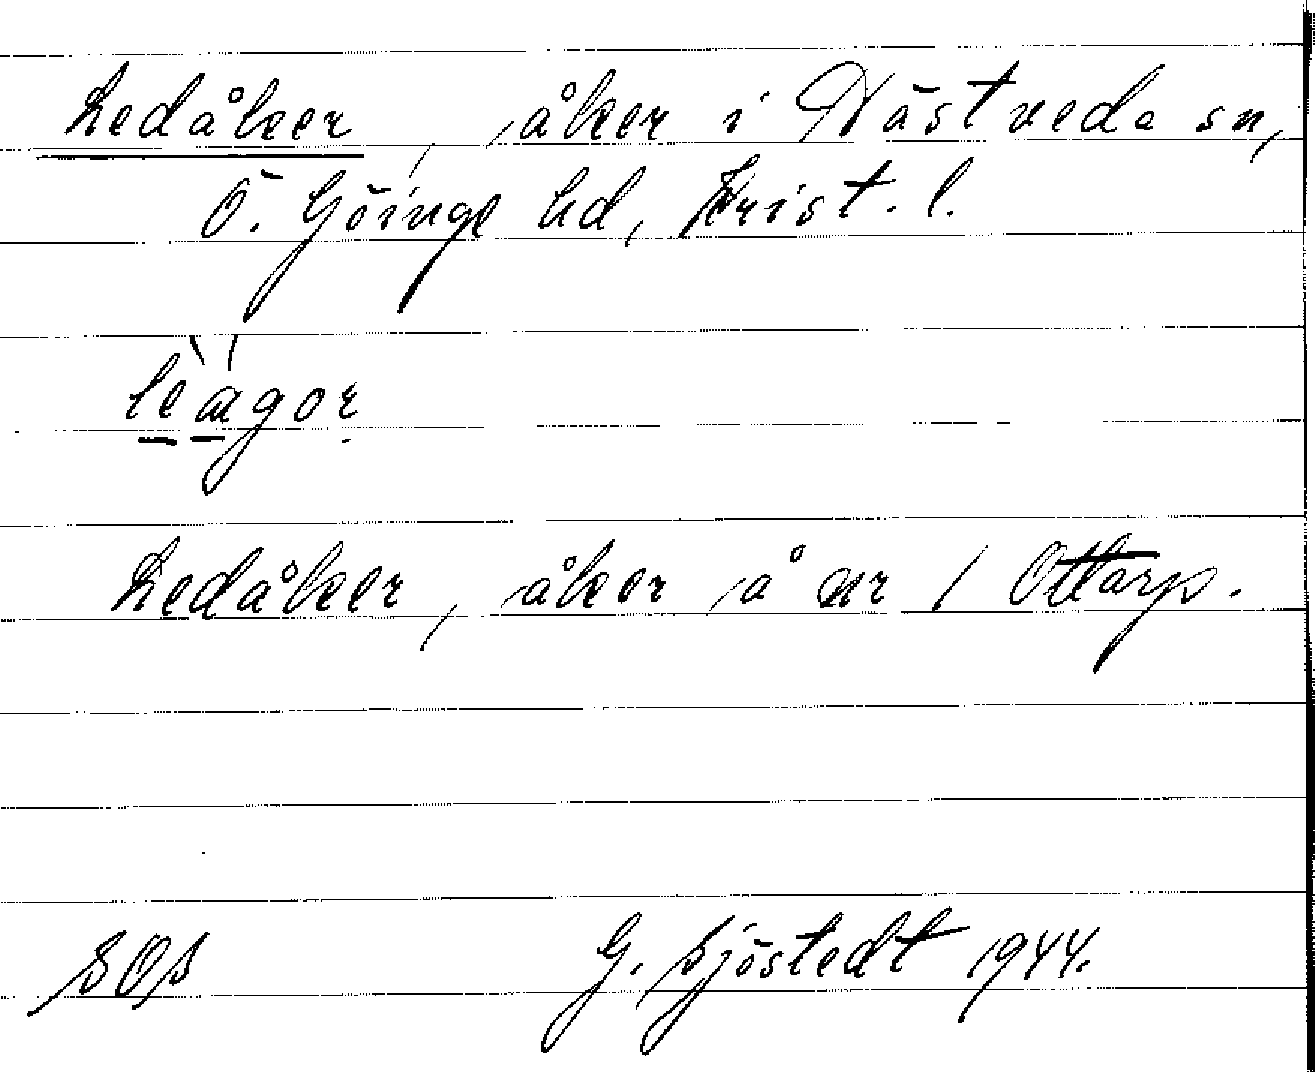 Ledåker, åker i Västveda sn,
Ö. Göinge hd, Krist. l.
lèágor
Ledåker, åker å nr 1 Ottarp.
SOS G. Sjöstedt 1944.